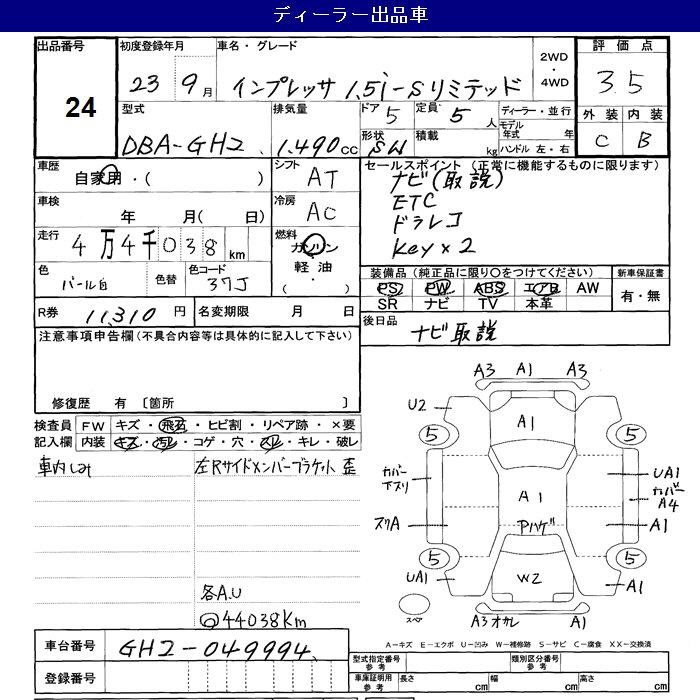 ディーラー出品車
出品番号 24
初度登録年月 23 9月
車名・グレード インプレッサ 1.5i-Sリミテッド
2WD・4WD
評価点 3.5
外装 C 内装 B
型式 DBA-GH2
排気量 1.490cc
ドア 5
定員 5人
形状 SW
積載 kg
ディーラー・並行
モデル年式 年
ハンドル 左・右
車歴 自家用・( )
シフト AT
セールスポイント (正常に機能するものに限ります)
ナビ(取説)
ETC
ドラレコ
Key×2
車検 年 月( 日)
冷房 AC
走行 4万4千038km
燃料 ガソリン 軽油 ( ・ )
色 パール白
色替
色コード 37J
装備品 (純正品に限り〇をつけてください)
PS PW ABS エアB AW
SR ナビ TV 本革
新車保証書 有・無
R券 11,310円
名変期限 月 日
後日品 ナビ取説
注意事項申告欄(不具合内容等は具体的に記入して下さい)
修復歴 有 〔箇所 〕
検査員記入欄
FW キズ・飛石・ヒビ割・リペア跡・×要
内装 キズ・汚レ・コゲ・穴・スレ・キレ・破レ
車内しみ
左Rサイドメンバーブラケット 歪
各A.U
@44038Km
A3 A1 A3
U2 A1
5 5
カバー下スリ
A1
UA1
カバーA4
スリA
Pハゲ
A1
5 5
UA1 W2 A1
スペア
A3 オカレ A1
A-キズ E-エクボ U-凹み W-補修跡 S-サビ C-腐食 XX-交換済
車台番号 GH2-049994
登録番号
型式指定番号 参考
類別区分番号 参考
車庫証明用 参考 長さ cm 幅 cm 高さ cm